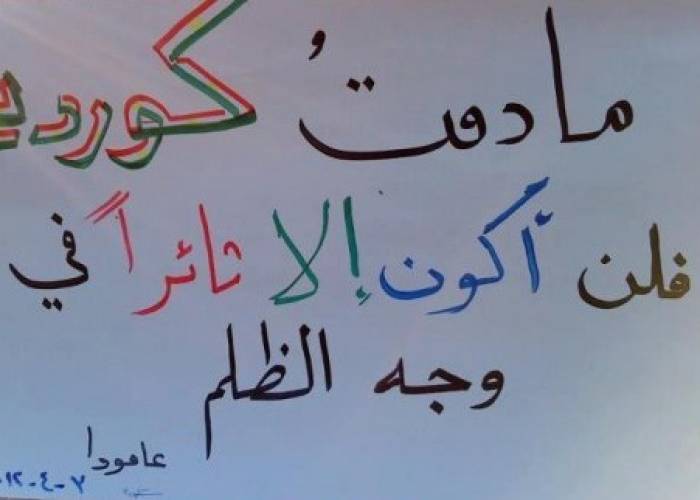 مادمتُ كوردي
فلن أكون إلا ثائراً في
وجه الظلم
عامودا
٠١٢-٤-٧